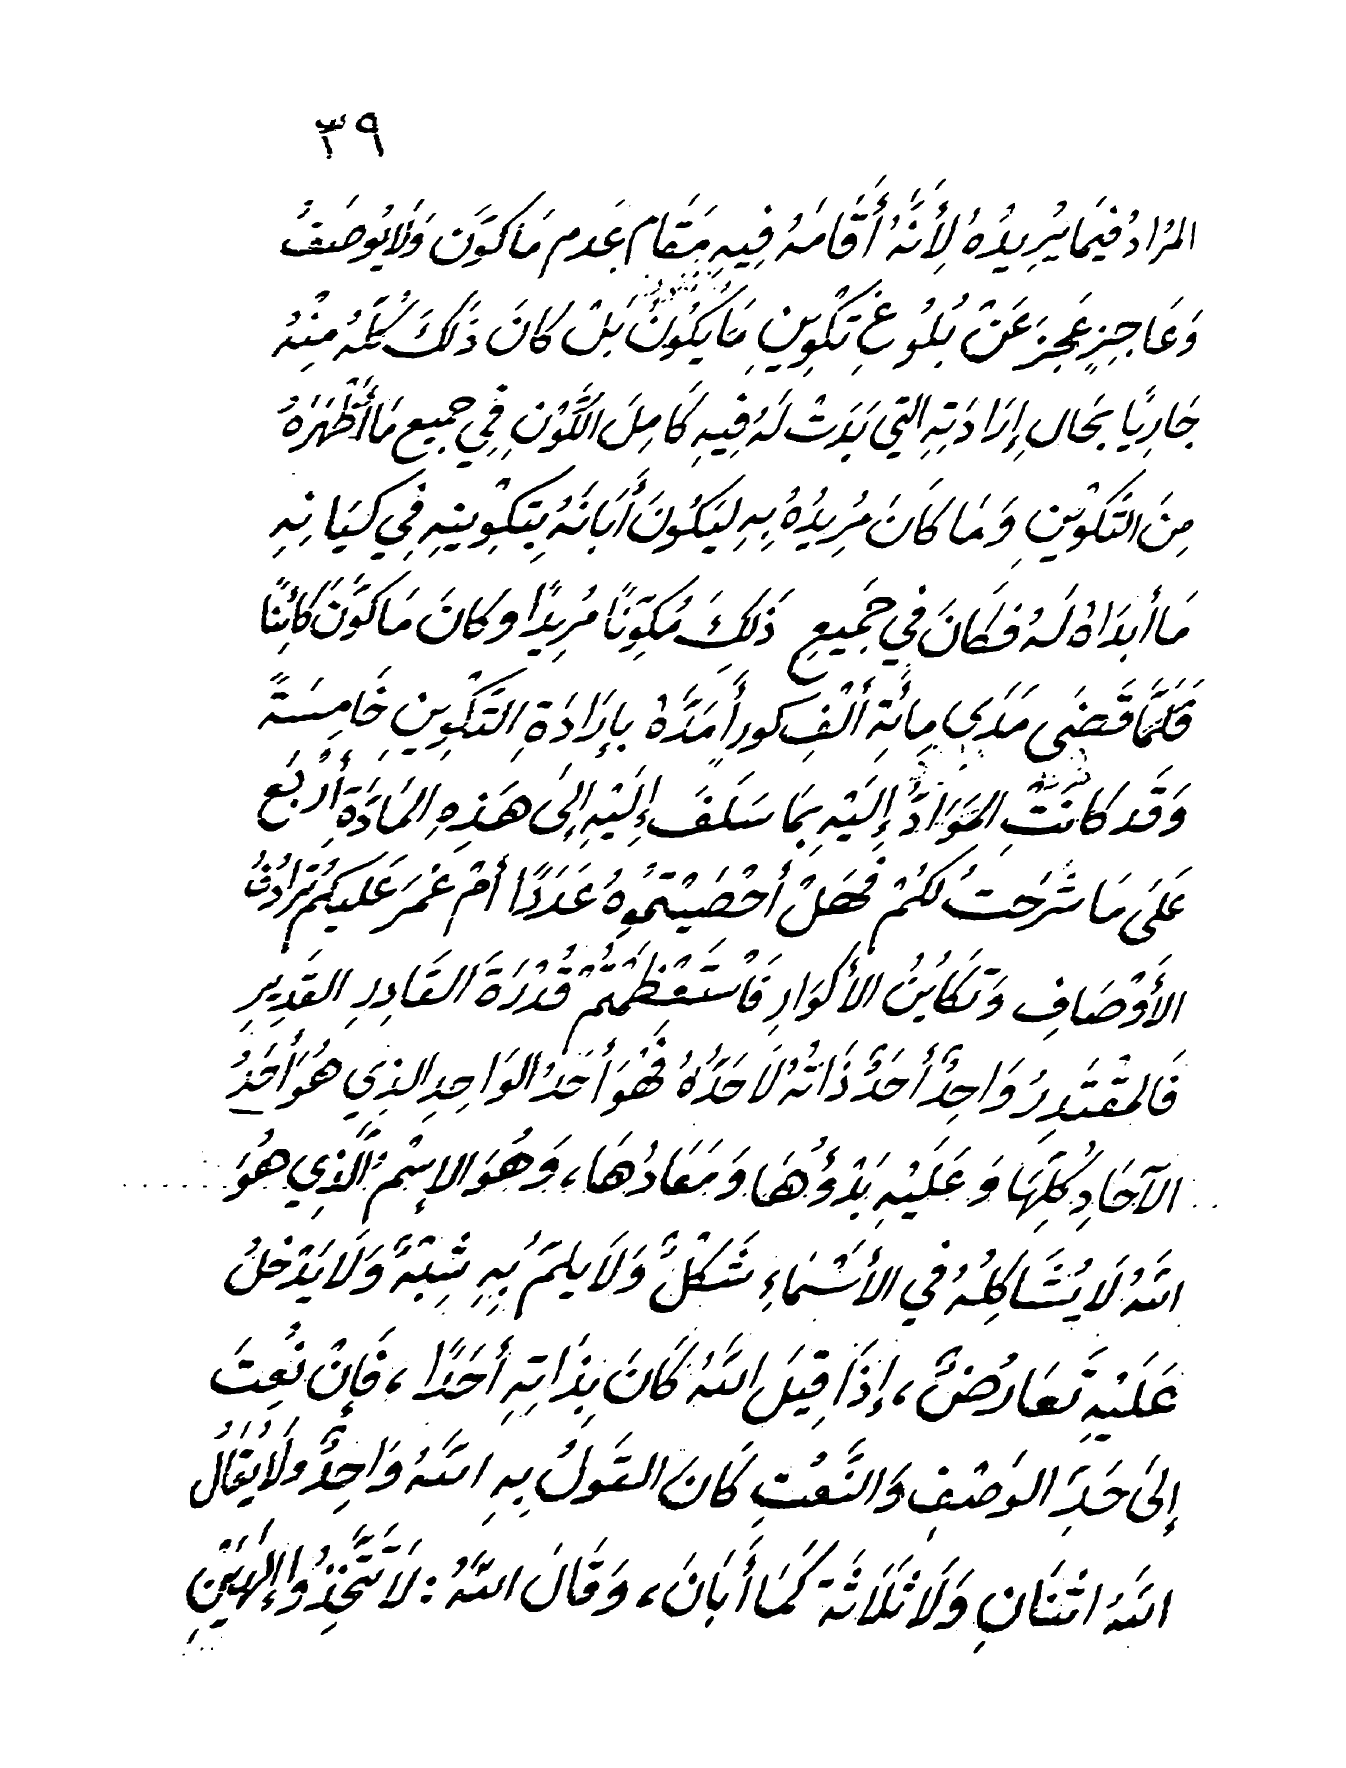 ٣٩
المُرَادُ فِيَما يُرِيدُهُ لِأَنَّهُ أَقَامَهُ فِيهِ مَقَام عَدم مَا كَوَّن وَلَا يُوصَفُ
وَعَاجِزٍ عَجِزَ عَنْ بُلُوغِ تَكْوِينِ مَا يَكُونُ بَلْ كانَ ذَلكَ كُلُّهُ مِنْهُ
جَارِيًا بحَال إِرَادَتِهِ التي بَدَتْ لَهُ فِيهِ كَامِلَ الكَوْنِ فِي جميع مَا أَظْهَرَهُ
مِنَ التَكْوِينِ وَمَا كَانَ مُرِيدُهُ بِهِ لِيَكُونَ أَبَانَهُ بِتَكْوِينِهِ فِي كَيَانِهِ
مَا أبدَاهُ لَهُ فكَانَ في جَمِيعِ ذَلِكَ مُكَوِّنًا مُرِيدًا وكَانَ مَا كَوَّنَ كَائِنًا
فَلَمَّا قَضَى مَدَى مِائَةِ أَلْفِ كورٍ أَمَدَّهُ بإِرَادَةِ التَكْوِينِ خَامِسَةً
وَقَد كانَتِ المَوَادُّ إِلَيْهِ بِمَا سَلَفَ إِلَيْهِ إِلَى هَذِهِ المَادَّةِ أَرْبَع
عَلَى مَا شَرَحْتُ لكُمْ فَهَلْ أحْصَيْتمُوهُ عَدَدًا أمْ غمَرَ عَليكُمْ تَرَادُفُ
الأَوْصَافِ وَتَكَايُنُ الأكْوَارِ فَاسْتَعْظَمْتُمْ قُدْرَةَ القَادِرِ القَدِيرِ
فَالمقْتَدِرُ وَاحِدٌ أَحَدٌ ذَاتُهُ لَا حَدَّهُ فَهُوَ أَحَدُ الوَاحِدِ الذِي هُوَ أحَدُ
الآحَادِ كُلِّهَا وَعَلَيْهِ بَدْؤُهَا وَمَعَادُهَا، وَهُوَ الإِسْمُ الَّذِي هُوَ
اللهُ لَا يُشَاكِلُهُ في الأَسْمَاءِ شَكْلٌ وَلَا يلمّ بِهِ شِبْهٌ وَلَا يَدْخُلُ
عَلَيْهِ تَعَارُضٌ، إِذَا قِيلَ اللهُ كَانَ بِذَاتِهِ أَحَدًا، فَإِنْ نُعِتَ
إِلَى حَدِّ الوَصْفِ وَالنَّعْتِ كَانَ القَولُ بِهِ اللهُ وَاحِدٌ وَلَا يُقَالُ
اللهُ اثْنَانِ وَلَا ثَلَاثَة كَمَا أَبَانَ، وَقَالَ اللهُ: لَا تَتَّخِذُوا إِلهَيْنِ